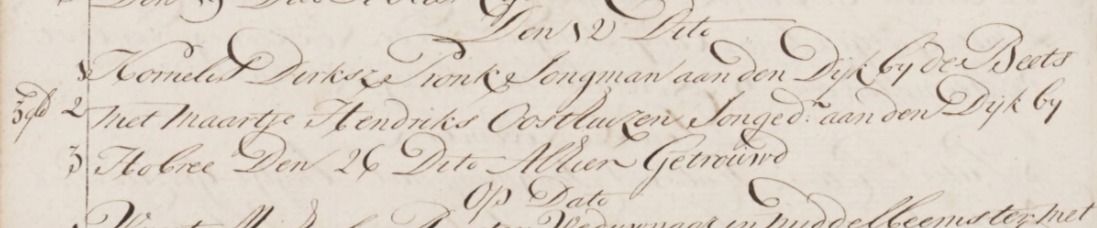 Den 12 Dito
1 Kornelis Dirksz Pronk Jongman aan den Dijk by de Beets
3 gld 2 met Maartje Hendriks Oosthuizen Jonged.r aan den Dijk by
3 Hobree Den 26 Dito Alhier Getrouwd
Op Dato
in middelbeemster met